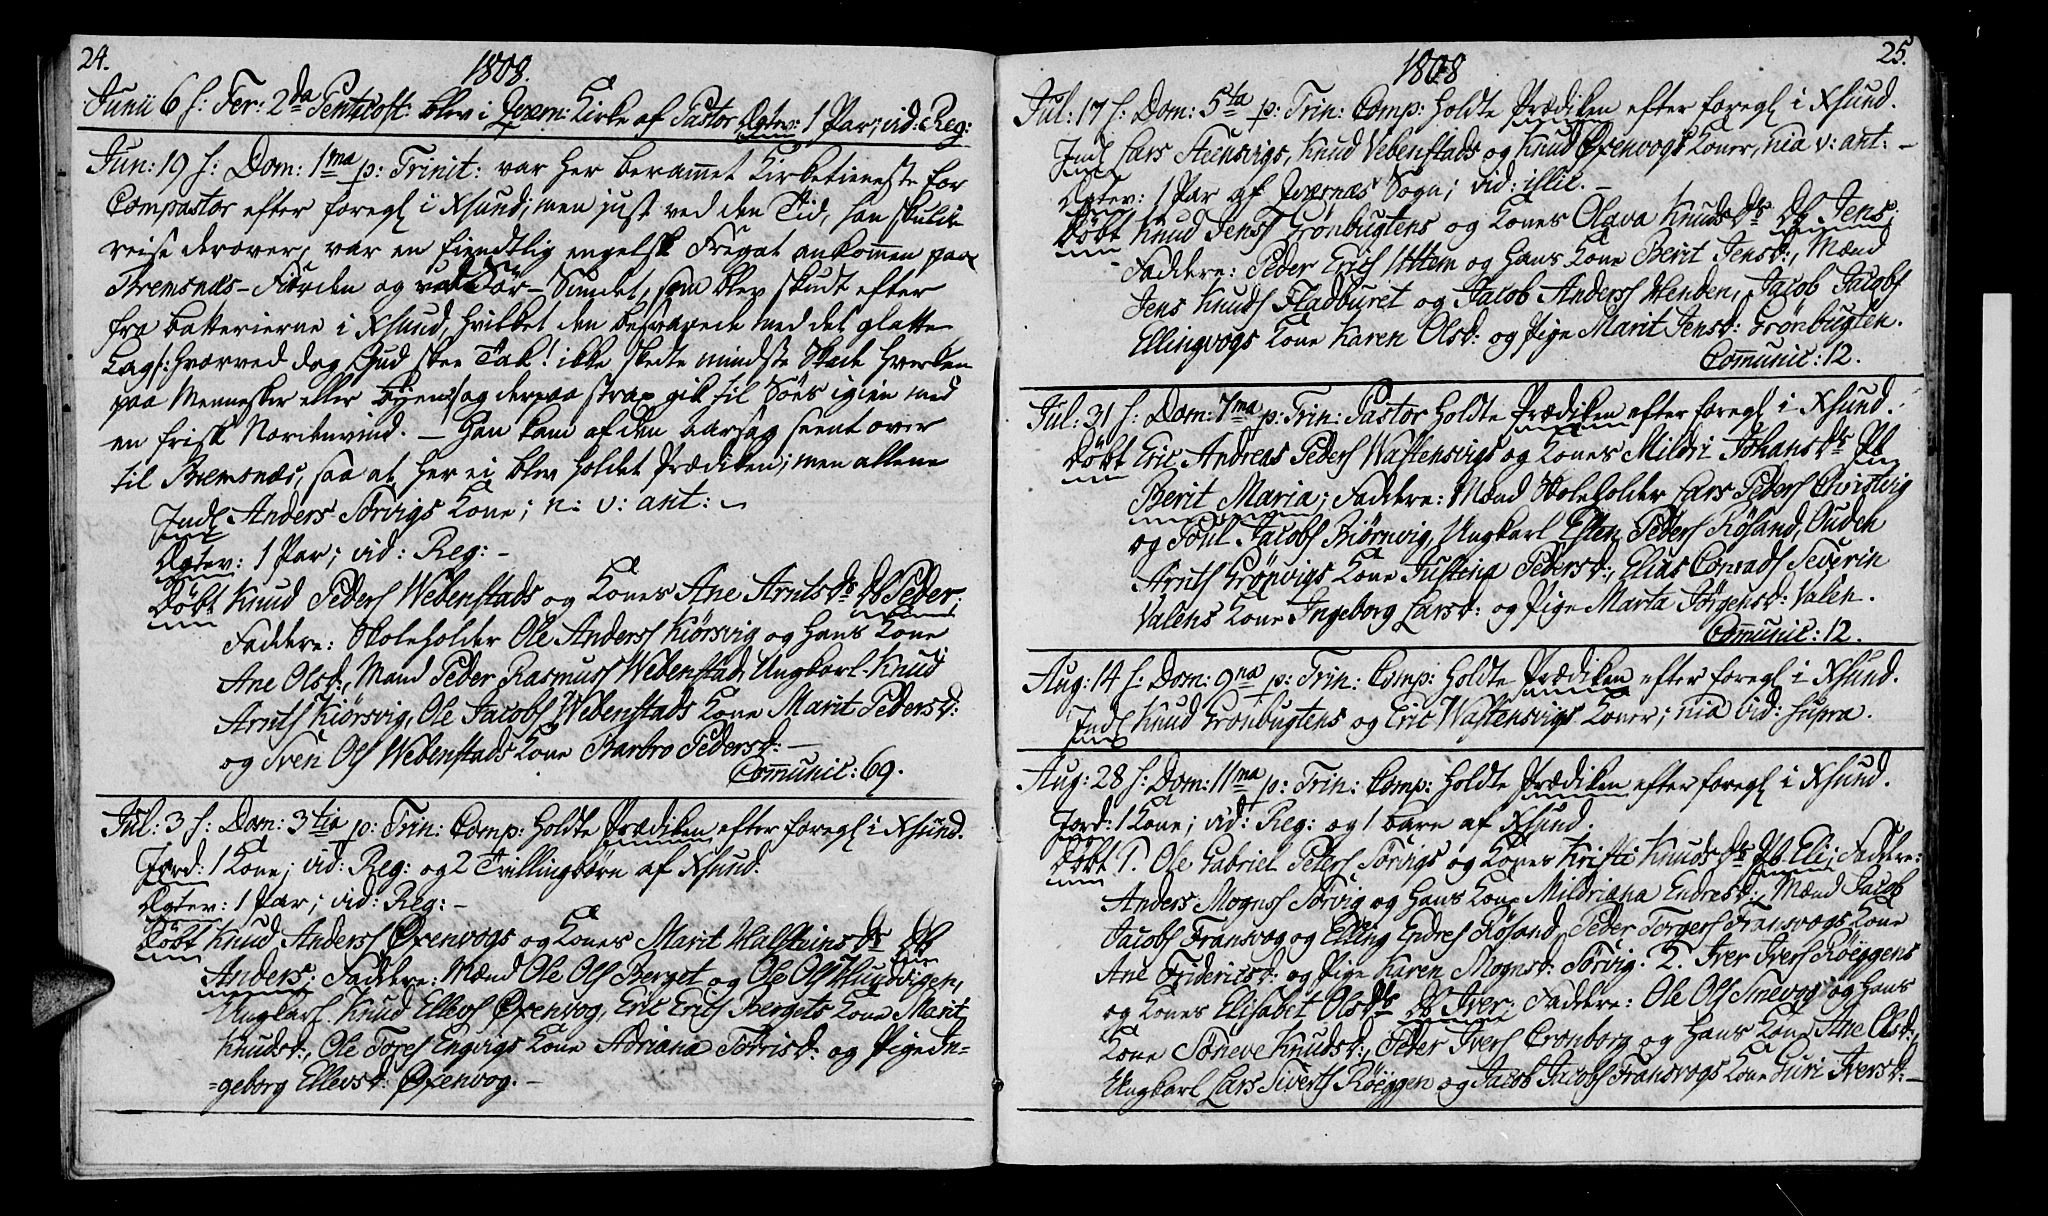 24.
1808.
Junii 6 h: Fer: 2da Pentecost: blev i Qværn: Kirke af Pastor Egtev: 1 Par; vid: Reg:
Jun: 19 h: Dom: 1ma p: Trinit: var her berammet Kirketieneste for
Compastor efter foregl i Xsund; men just ved den Tid, han skulde
reise derover, var en fiendtlig engelsk Fregat ankommen paa
Bremsnæs-Fiorden og ved Sör-Sundet, som blev skudt efter
fra batterierne i Xsund, hvilket den besvarede med det glatte
Lag /: hvorved dog Gud skee Tak! ikke skedte mindste Skade hverken
paa Mennesker eller Byen :/ og derpaa strax gik til Söes igien med
en frisk Nordenvind. – Han kom af den aarsag seent over
til Bremsnæs, saa at her ei blev holdet Prædiken; men allene
Indl Anders Sörvigs Kone; n: v: ant: –
Egtev: 1 Par; vid: Reg: –
Döbt Knud Peders Webenstads og Kones Ane Arntsdr Db Peder;
Faddere: Skoleholder Ole Anderss Kiörsvig og hans Kone
Ane Olsd:, Mand Peder Rasmuss Webenstad, Ungkarl Knud
Arnts Kiörsvig, Ole Jacobs Webenstads Kone Marit Pedersd:
og Sven Ols Webenstads Kone Barbro Pedersd: –
Communic: 69.
Jul: 3 h: Dom: 3tia p: Trin: Comp: holdte Prædiken efter foregl i Xsund.
Jord: 1 Kone; vid: Reg: og 2 Tvillingbörn af Xsund.
Egtev: 1 Par; vid: Reg: –
Döbt Knud Anderss Öxenvogs og Kones Marit Halsteinsdr Db
Anders; Faddere: Mænd Ole Ols Berget og Ole Ols Hundvigen,
Ungkarl Knud Ellevs Öxenvog, Eric Erics Bergets Kone Marit
Knudsd:, Ole Tores Engvigs Kone Adriana Torrisd: og Pige In=
=geborg Ellevsd: Öxenvog. –
25.
1808
Jul: 17 h: Dom: 5ta p: Trin: Comp: holdte Prædiken efter foregl i Xsund.
Indl Lars Steensvigs, Knud Vebenstads og Knud Öxenvogs Koner, nia v: ant: –
Egtev: 1 Par af Qværnæs Sogn; vid: illic. –
Döbt Knud Jenss Grönbugtens og Kones Olava Knudsdr Db Jens;
Faddere: Peder Erics Uttem og hans Kone Berit Jensd:, Mænd
Jens Knuds Fladburet og Jacob Anderss Wenben, Jacob Jacobs
Ellingvogs Kone Karen Olsd: og Pige Marit Jensd: Grönbugten.
Communic: 12.
Jul: 31 h: Dom: 7ma p: Trin: Pastor holdte Prædiken efter foregl i Xsund.
Döbt Eric Andreas Peders Wastensvigs og Kones Mildri Johansdr Pb
Berit Maria; Faddere: Mænd Skoleholder Lars Peders Christvig
og Poul Jacobs Biörnvig, Ungkarl Esten Peders Rösand, Ouden
Arnts Grönvigs Kone Justina Pedersd:, Elias Conrads Severin
Valens Kone Ingeborg Larsd: og Pige Marta Jörgensd: Valen.
Communic: 12.
Aug: 14 h: Dom: 9na p: Trin: Comp: holdte Prædiken efter foregl i Xsund.
Indl Knud Grönbugtens og Eric Wastensvigs Koner; nia vid: supra.
Aug: 28 h: Dom: 11ma p: Trin: Comp: holdte Prædiken efter foregl i Xsund.
Jord: 1 Kone; vid: Reg: og 1 barn af Xsund.
Döbt 1. Ole Gabriel Peders Sörvigs og Kones Kristi Knudsdr Pb Eli; Faddere:
Anders Mognss Sörvig og hans Kone Mildriana Endresd:, Mænd Jacob
Jacobs Fransvog og Elling Endres Rösand, Peder Torgers Fransvogs Kone
Ane Fridericsd: og Pige Karen Mognsd: Sörvig. 2. Iver Ivers Röeggens
og Kones Elisabet Olsdr Db Iver; Faddere: Ole Ols Snevog og hans
Kone Söneve Knudsd:, Peder Ivers Cronborg og hans Kone Ane Olsd:,
Ungkarl Lars Siverts Röeggen og Jacob Jacobs Fransvogs Kone Guri Iversd: –